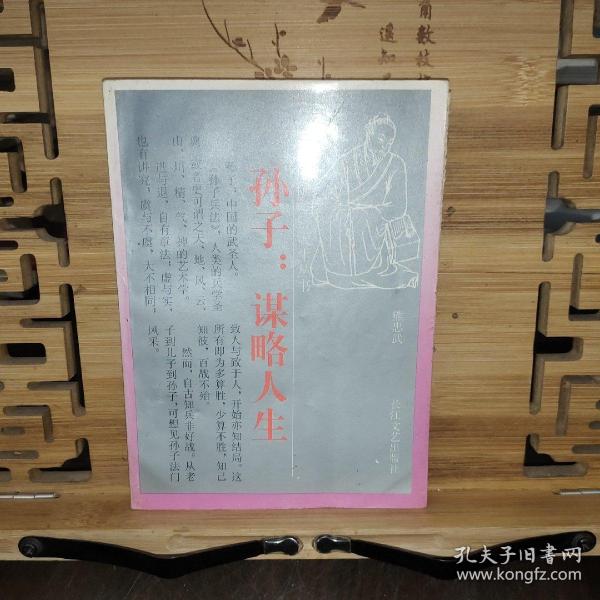 角数枝
遥知
熊忠武
长江文艺出版社
孙子：谋略人生
孙子，中国的武圣人。
《孙子兵法》，人类的兵学圣
典，或者更可谓之天、地、风、云、
山、川、精、气、神的艺术学。
进与退，自有章法；虚与实，
也有讲究；虞与不虞，大不相同，
致人与致于人，开始亦知结局。这
所有即为多算胜，少算不胜，知己
知彼，百战不殆。
然而，自古知兵非好战。从老
子到儿子到孙子，可想见孙子法门
风采。
孔夫子旧书网
www.kongfz.com